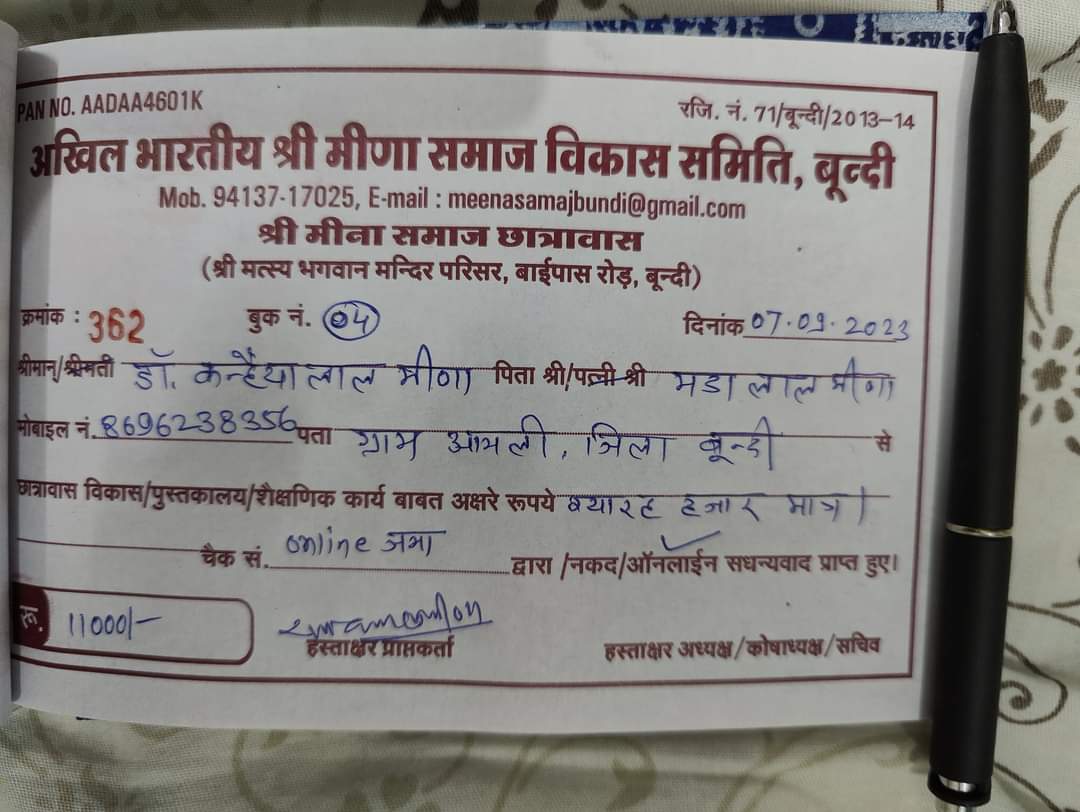 PAN NO. AADAA4601K
रजि. नं. 71/बून्दी/2013-14
अखिल भारतीय श्री मीणा समाज विकास समिति, बून्दी
Mob. 94137-17025, E-mail : meenasamajbundi@gmail.com
श्री मीना समाज छात्रावास
(श्री मत्स्य भगवान मन्दिर परिसर, बाईपास रोड़, बून्दी)
क्रमांक : 362 बुक नं. 04 दिनांक 07.09.2023
श्रीमान/श्रीमती डॉ. कन्हैया लाल मीणा पिता श्री/पत्नी श्री लाल मीणा
मोबाइल नं. 8696238356 पता ग्राम आमली, जिला बून्दी से
छात्रावास विकास/पुस्तकालय/शैक्षणिक कार्य बाबत अक्षरे रूपये ग्यारह हजार मात्र।
चैक सं. online जमा द्वारा/नकद/ऑनलाईन सधन्यवाद प्राप्त हुए।
रू. 11000/-
हस्ताक्षर प्राप्तकर्ता
हस्ताक्षर अध्यक्ष/कोषाध्यक्ष/सचिव